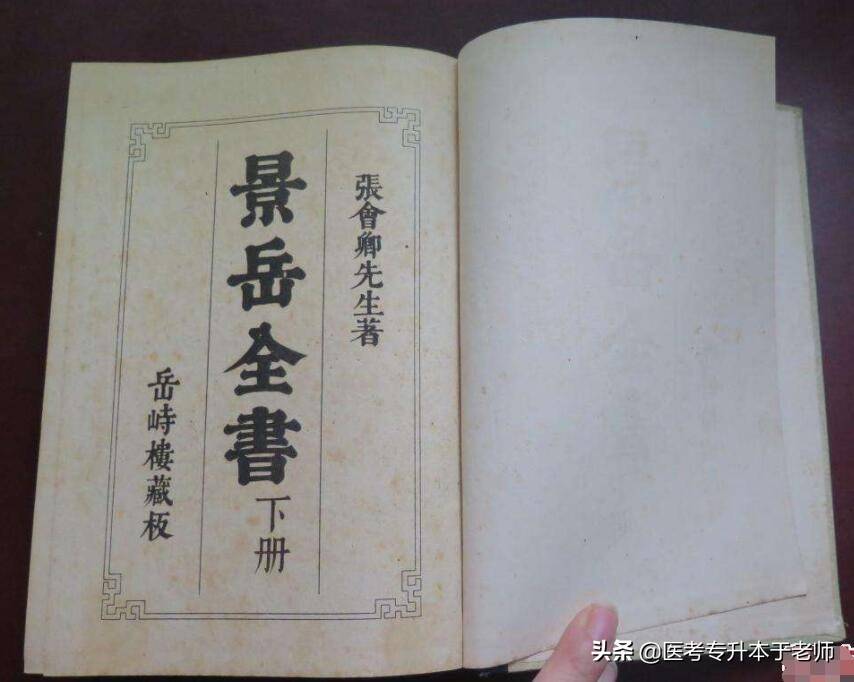 張會卿先生著
景岳全書下册
岳峙樓藏板
头条 @医考专升本于老师